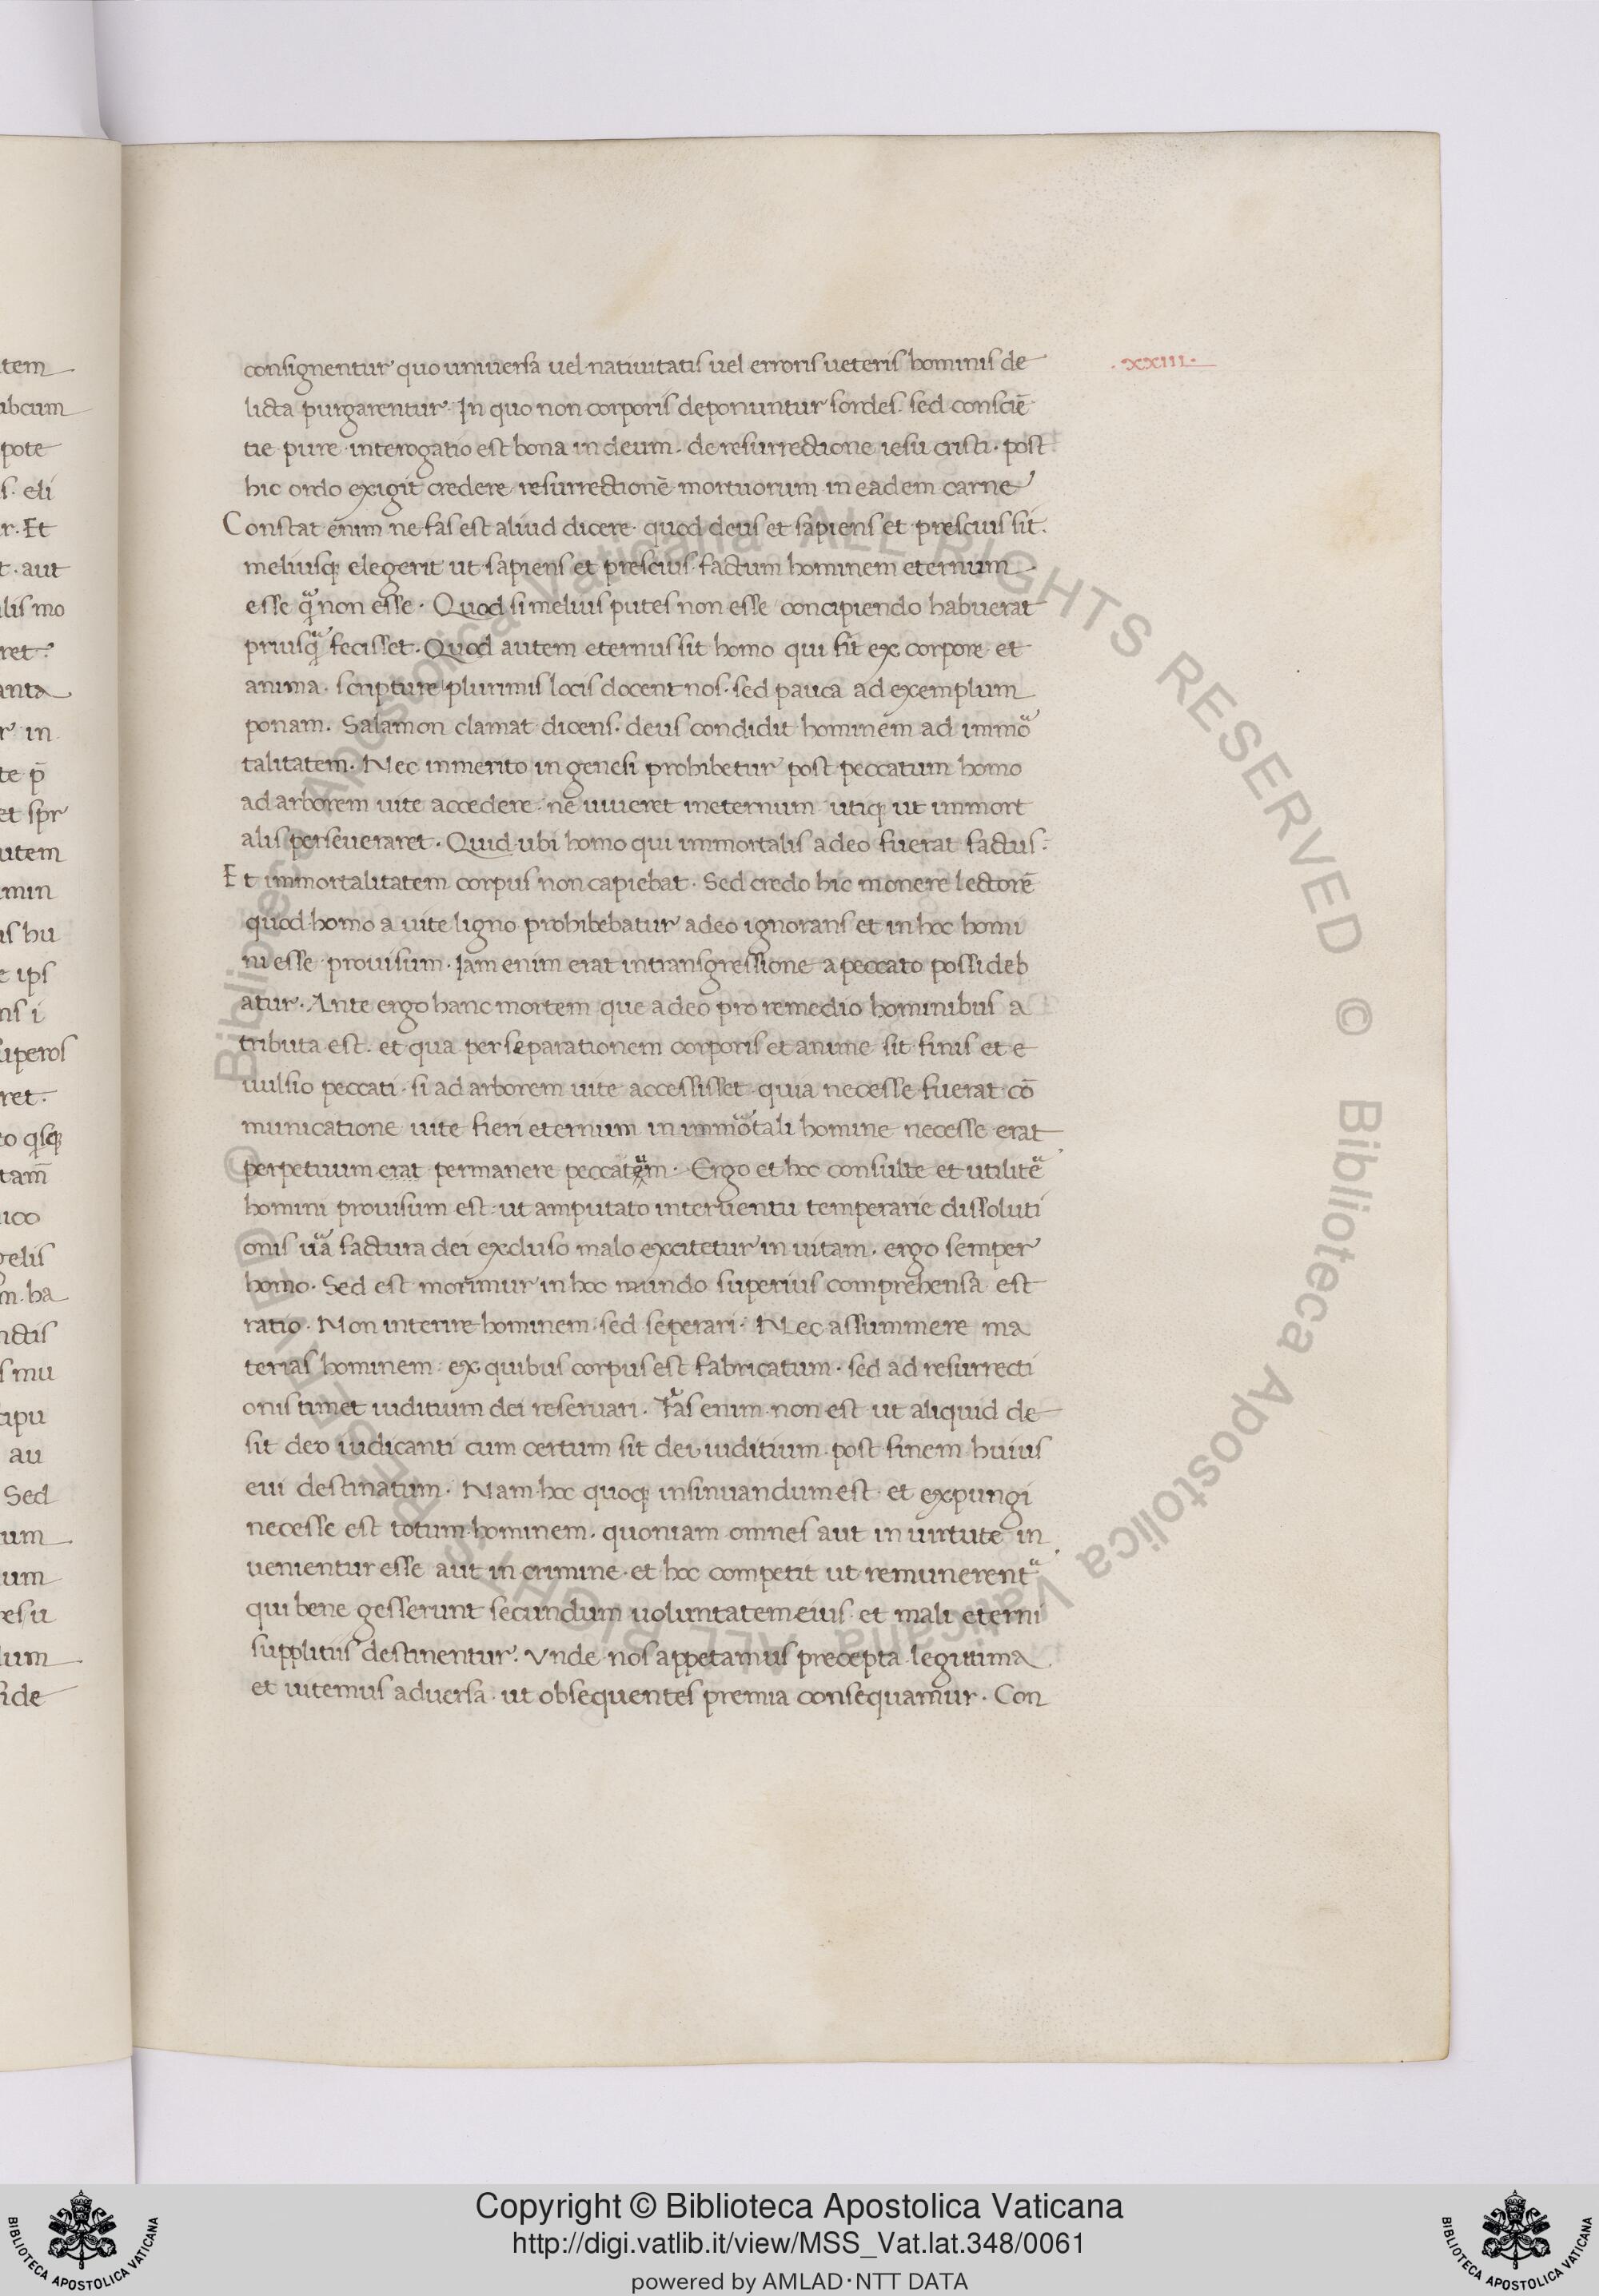 consignentur quo universa uel nativitatis uel erroris ueteris hominis de
.xxiii.
licta purgarentur. In quo non corporis deponuntur sordes. sed consciē
tie pure interogatio est bona in deum. de resurrectione iesu cristi. post
hic ordo exigit credere resurrectionē mortuorum in eadem carne
Constat enim ne fas est aliud dicere. quod deus et sapiens et prescius sit.
meliusq; elegerit ut sapiens et prescius factum hominem eternum
esse qᷓ non esse. Quod si melius putes non esse concipiendo habuerat
priusqᷓ fecisset. Quod autem eternus sit homo qui fit ex corpore et
anima. scripture plurimis locis docent nos. sed pauca ad exemplum
ponam. Salamon clamat dicens. deus condidit hominem ad immoᷓ
talitatem. Nec inmerito in genesi prohibetur post peccatum homo
ad arborem uite accedere. ne uiueret ineternum utiq; ut immort
alis perseueraret. Quid ubi homo qui immortalis adeo fuerat factus.
Et immortalitatem corpus non capiebat. Sed credo hic monere lectorē
quod homo a uite ligno prohibebatur adeo ignorans et in hoc homi
ni esse prouisum. Iam enim erat intransgressione a peccato possideb
atur. Ante ergo hanc mortem que adeo pro remedio hominibus a
tributa est. et qua per separationem corporis et anime sit finis et e
uulsio peccati. si ad arborem uite accessisset quia necesse fuerat cō
municatione uite fieri eternum in immoᷓtali homine necesse erat
perpetuum erat permanere peccatem. Ergo et hoc consulte et utilitēᷓ
homini prouisum est. ut amputato interuentu temperarie dissoluti
onis uᷓa factura dei excluso malo excitetur in uitam. ergo semper
homo. Sed est morimur in hoc mundo superius comprehensa est
ratio. Non interire hominem. sed seperari. Nec assummere ma
terias hominem. ex quibus corpus est fabricatum. sed ad resurrecti
onis timet iuditium dei reseruari. Fas enim non est ut aliquid de
sit deo iudicanti cum certum sit dei iuditium. post finem huius
eui destinatum. Nam hoc quoq; insinuandum est et expungi
necesse est totum hominem. quoniam omnes aut in uirtute in
uenientur esse aut in crimine. et hoc competit ut remunerentᷓ
qui bene gesserunt secundum uoluntatem eius. et mali eterni
supplitiis destinentur. Vnde nos appetamus precepta legittima
et uitemus aduersa. ut obsequentes premia consequamur. Con
Copyright © Biblioteca Apostolica Vaticana
http://digi.vatlib.it/view/MSS_Vat.lat.348/0061
powered by AMLAD·NTT DATA